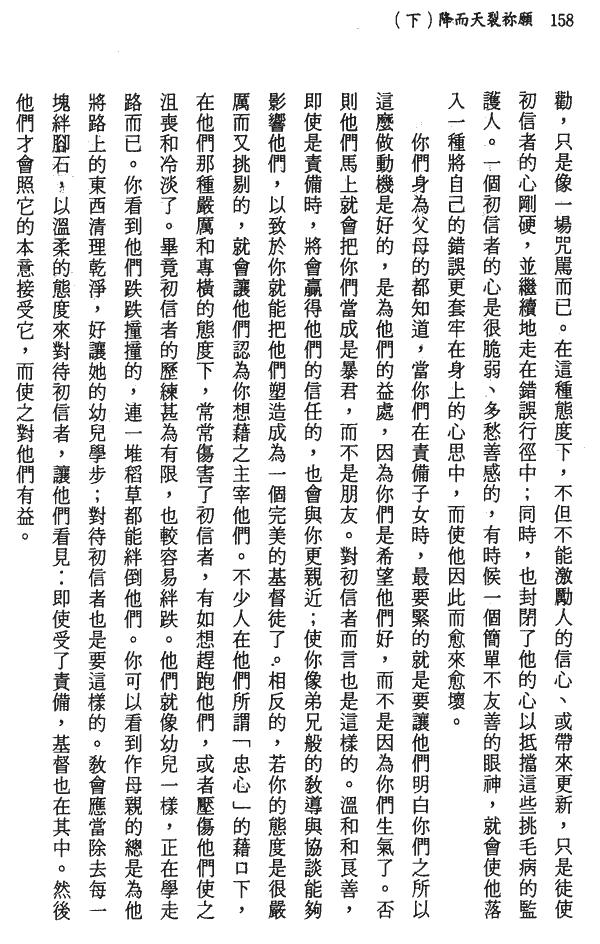 158　願祢裂天而降（下）
勸，只是像一場咒罵而已。在這種態度下，不但不能激勵人的信心、或帶來更新，只是徒使
初信者的心剛硬，並繼續地走在錯誤行徑中；同時，也封閉了他的心以抵擋這些挑毛病的監
護人。一個初信者的心是很脆弱、多愁善感的，有時候一個簡單不友善的眼神，就會使他落
入一種將自己的錯誤更套牢在身上的心思中，而使他因此而愈來愈壞。
你們身為父母的都知道，當你們在責備子女時，最要緊的就是要讓他們明白你們之所以
這麼做動機是好的，是為他們的益處，因為你們是希望他們好，而不是因為你們生氣了。否
則他們馬上就會把你們當成是暴君，而不是朋友。對初信者而言也是這樣的。溫和和良善，
即使是責備時，將會贏得他們的信任的，也會與你更親近；使你像弟兄般的教導與協談能夠
影響他們，以致於你就能把他們塑造成為一個完美的基督徒了。相反的，若你的態度是很嚴
厲而又挑剔的，就會讓他們認為你想藉之主宰他們。不少人在他們所謂「忠心」的藉口下，
在他們那種嚴厲和專橫的態度下，常常傷害了初信者，有如想趕跑他們，或者壓傷他們使之
沮喪和冷淡了。畢竟初信者的歷練甚為有限，也較容易絆跌。他們就像幼兒一樣，正在學走
路而已。你看到他們跌跌撞撞的，連一堆稻草都能絆倒他們。你可以看到作母親的總是為他
將路上的東西清理乾淨，好讓她的幼兒學步；對待初信者也是要這樣的。教會應當除去每一
塊絆腳石，以溫柔的態度來對待初信者，讓他們看見：即使受了責備，基督也在其中。然後
他們才會照它的本意接受它，而使之對他們有益。